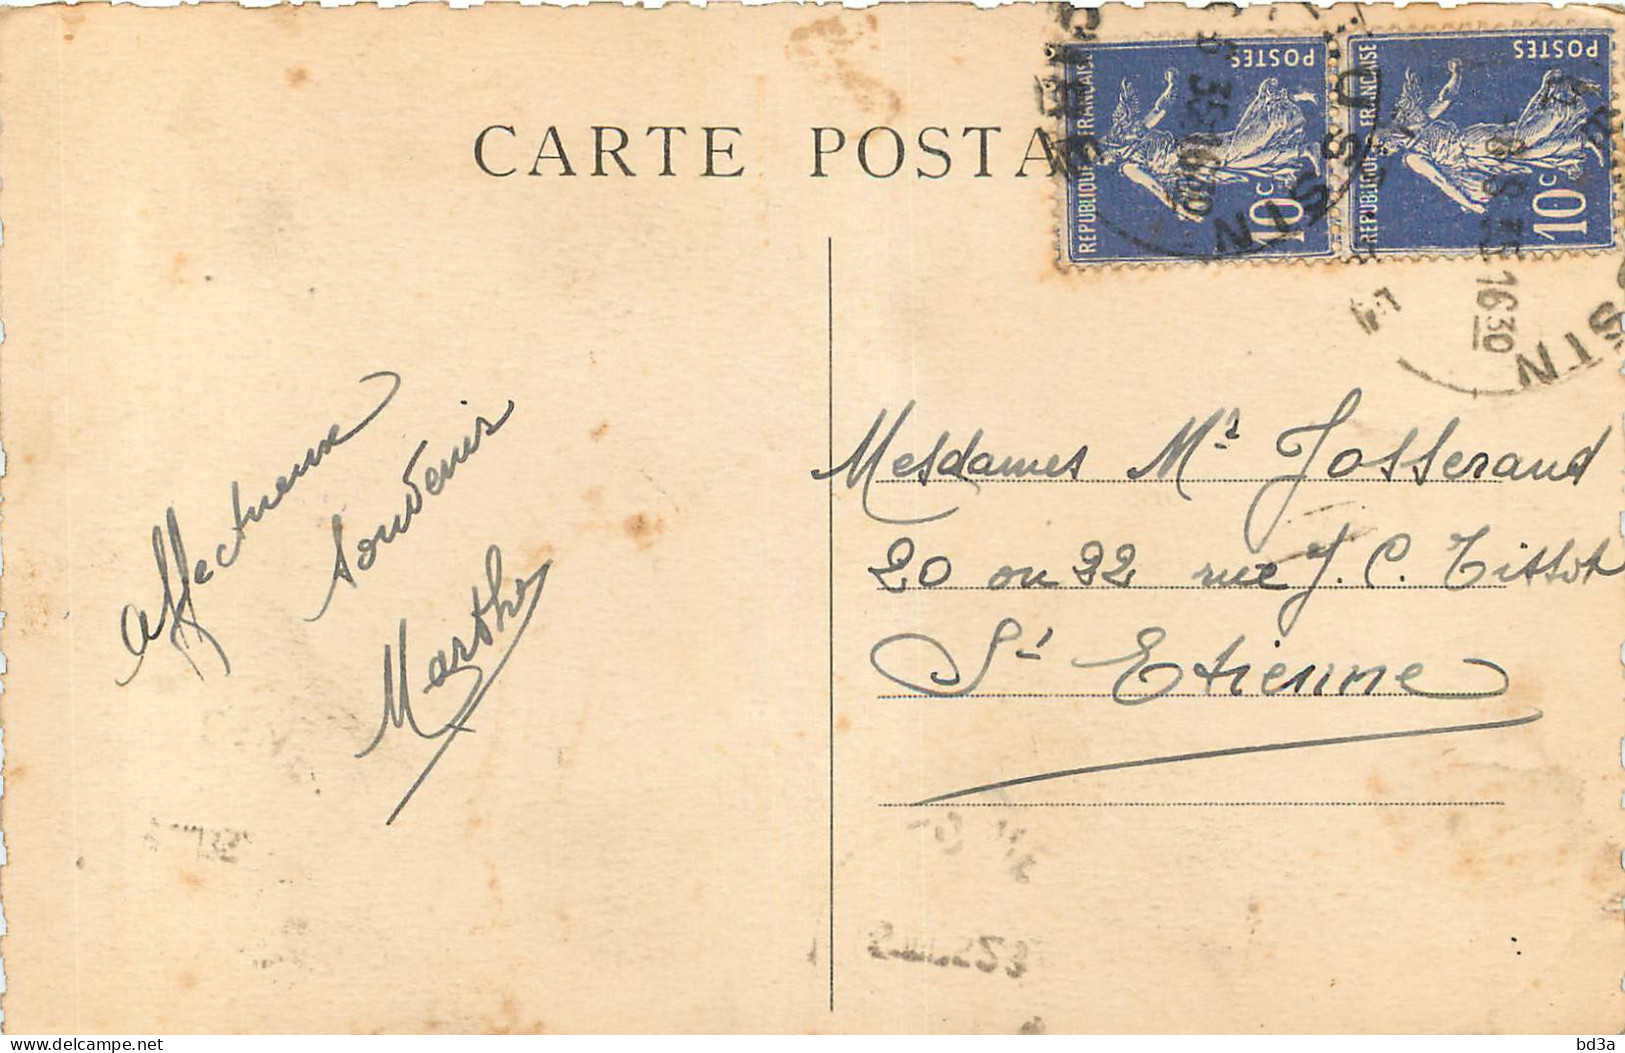 CARTE POSTA
POSTES
REPUBLIQUE FRANÇAISE
10c
POSTES
REPUBLIQUE FRANÇAISE
10c
35 1630
8 35 1630
Affectueux
souvenir
Marthe
Mesdames Ms Josserand
20 ou 22 rue J. C. Tissot
St Etienne
delcampe.net
bd3a